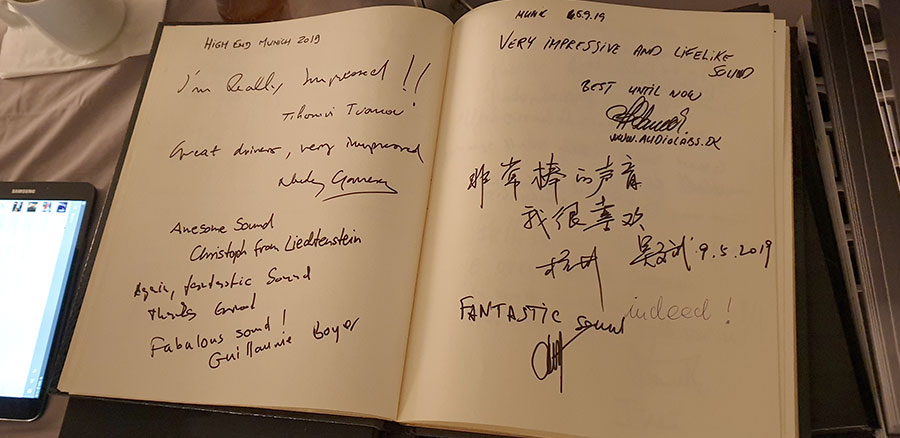 SAMSUNG
HIGH END MUNICH 2019
I'm Really Impressed !!
Tihomir Ivanov
Great drivers, very impressed
Awesome Sound
Christoph from Liechtenstein
Again, fantastic Sound
Thanks
Fabulous sound !
Guillaume Boyer
9.19
VERY IMPRESSIVE AND LIFELIKE
SOUND
BEST UNTIL NOW
WWW.AUDIOLABS.DK
非常棒的声音
我很喜欢
9.5.2019
FANTASTIC sound indeed !